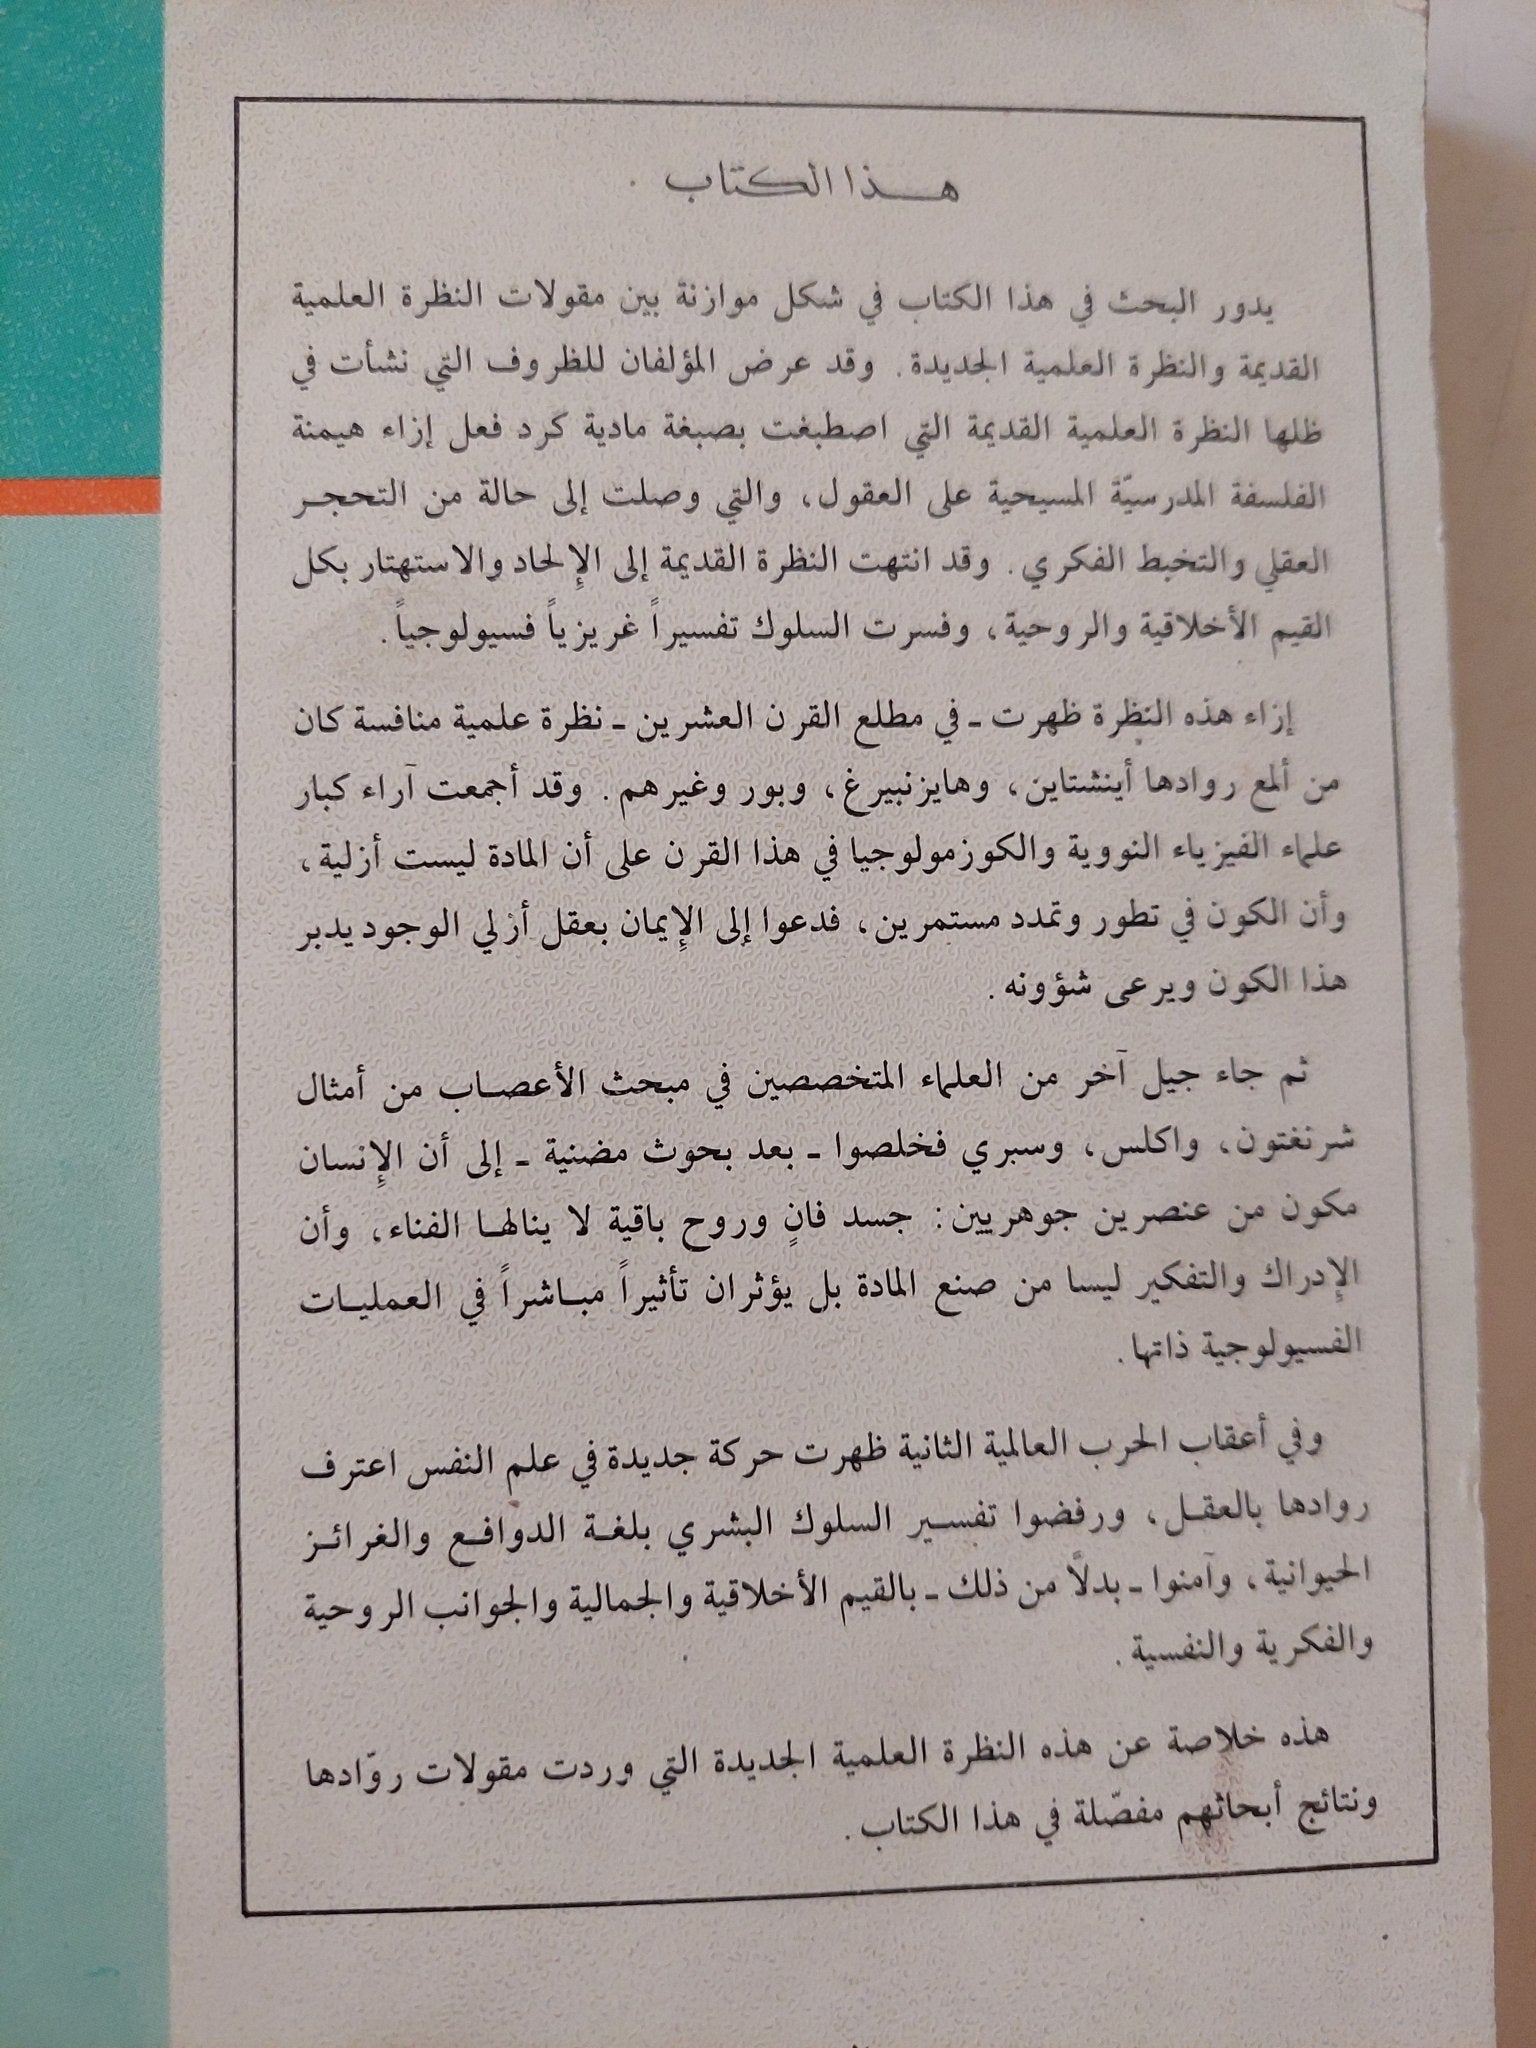 هذا الكتاب
يدور البحث في هذا الكتاب في شكل موازنة بين مقولات النظرة العلمية
القديمة والنظرة العلمية الجديدة. وقد عرض المؤلفان للظروف التي نشأت في
ظلها النظرة العلمية القديمة التي اصطبغت بصبغة مادية كرد فعل إزاء هيمنة
الفلسفة المدرسيّة المسيحية على العقول، والتي وصلت إلى حالة من التحجر
العقلي والتخبط الفكري. وقد انتهت النظرة القديمة إلى الإِلحاد والاستهتار بكل
القيم الأخلاقية والروحية، وفسرت السلوك تفسيراً غريزياً فسيولوجياً.
إزاء هذه النظرة ظهرت ـ في مطلع القرن العشرين ـ نظرة علمية منافسة كان
من ألمع روادها أينشتاين، وهايزنبيرغ، وبور وغيرهم. وقد أجمعت آراء كبار
علماء الفيزياء النووية والكوزمولوجيا في هذا القرن على أن المادة ليست أزلية،
وأن الكون في تطور وتمدد مستمرين، فدعوا إلى الإِيمان بعقل أزلي الوجود يدبر
هذا الكون ويرعى شؤونه.
ثم جاء جيل آخر من العلماء المتخصصين في مبحث الأعصاب من أمثال
شرنغتون، واكلس، وسبري فخلصوا ـ بعد بحوث مضنية ـ إلى أن الإِنسان
مكون من عنصرين جوهريين: جسد فانٍ وروح باقية لا ينالها الفناء، وأن
الإِدراك والتفكير ليسا من صنع المادة بل يؤثران تأثيراً مباشراً في العمليات
الفسيولوجية ذاتها.
وفي أعقاب الحرب العالمية الثانية ظهرت حركة جديدة في علم النفس اعترف
روادها بالعقل، ورفضوا تفسير السلوك البشري بلغة الدوافع والغرائز
الحيوانية، وآمنوا ـ بدلاً من ذلك ـ بالقيم الأخلاقية والجمالية والجوانب الروحية
والفكرية والنفسية.
هذه خلاصة عن هذه النظرة العلمية الجديدة التي وردت مقولات روّادها
ونتائج أبحاثهم مفصّلة في هذا الكتاب.